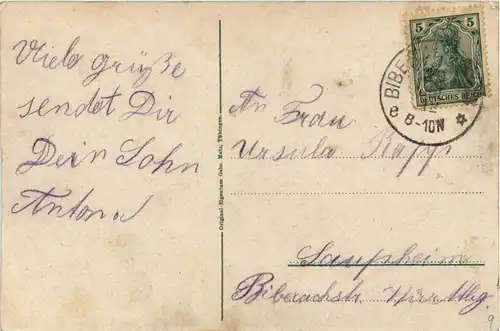 Viele grüße
sendet Dir
Dein Sohn
Anton
Original-Eigentum Gebr. Metz, Tübingen.
5 5
DEUTSCHES REICH
BIBE
8-10N
An Frau
Ursula Rapp
Laupheim
Biberachstr.